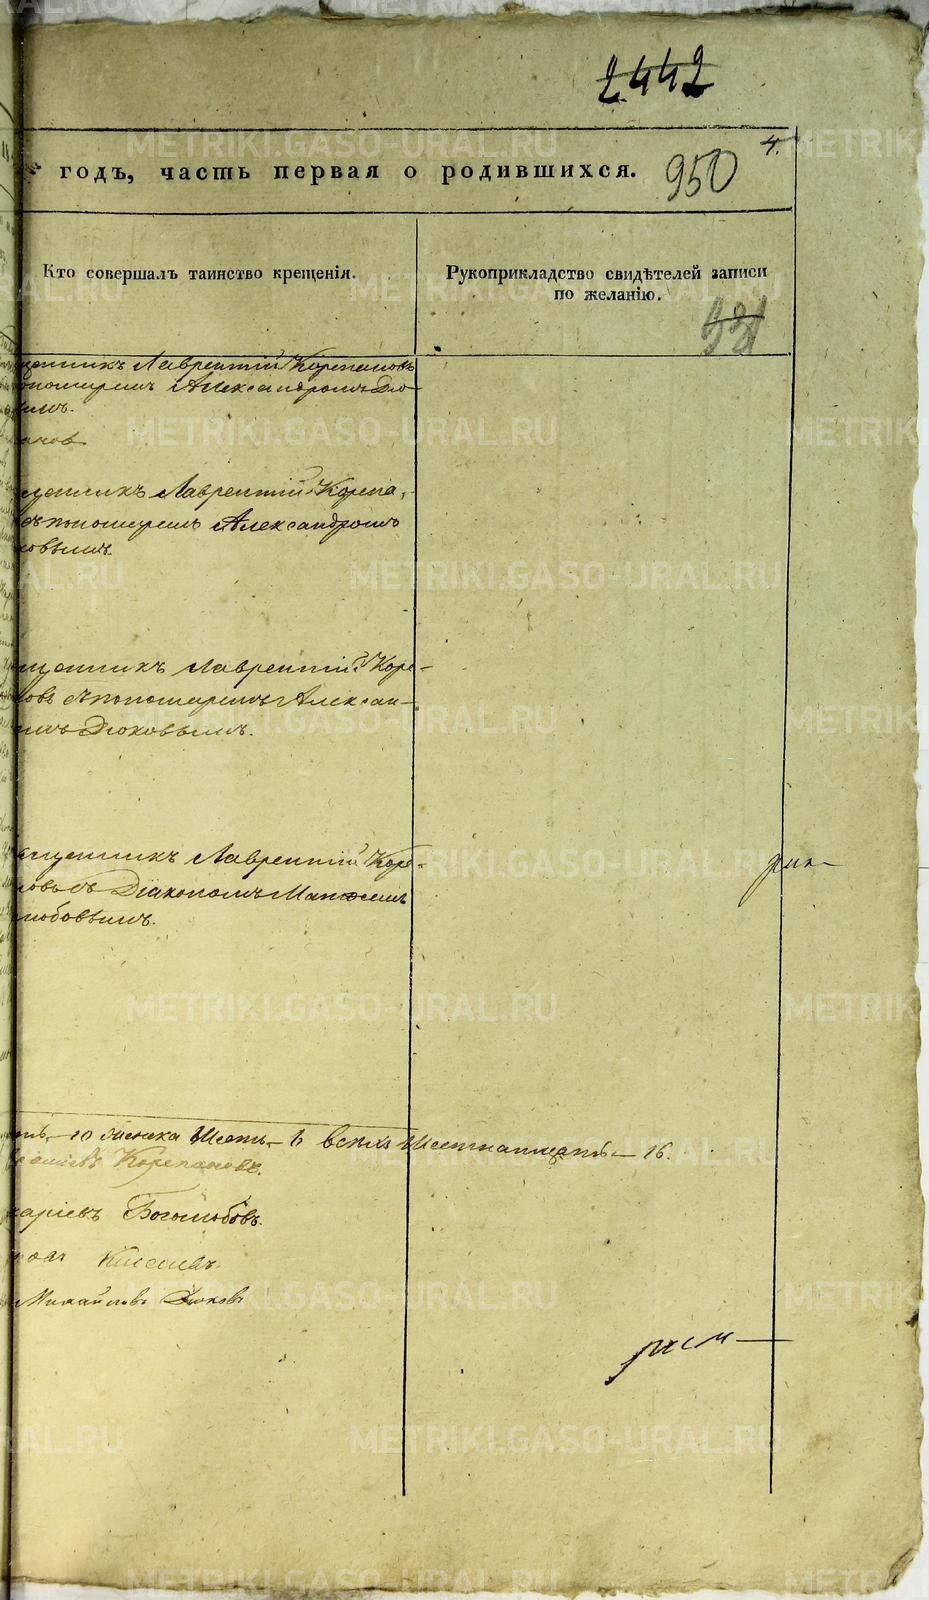 2442
годъ, часть первая о родившихся.
950
4.
Кто совершалъ таинство крещенія.
Рукоприкладство свидѣтелей записи
по желанію.
931
щенникъ Лаврентій Корепановъ
пономаремъ Александромъ Дю-
вымъ.
щенникъ Лаврентій Корепа,
съ пономаремъ Александромъ
ковымъ.
щенникъ Лаврентій Коре-
новъ съ пономаремъ Алексан-
омъ Дюковымъ.
щенникъ Лаврентій Коре-
новъ съ Діакономъ
любовымъ.
10 женска Шесть 6 всѣхъ Шестнатцать 16.
Корепановъ.
каріевъ Боголюбовъ.
Михайловъ Дюковъ
METRIKI.GASO-URAL.RU